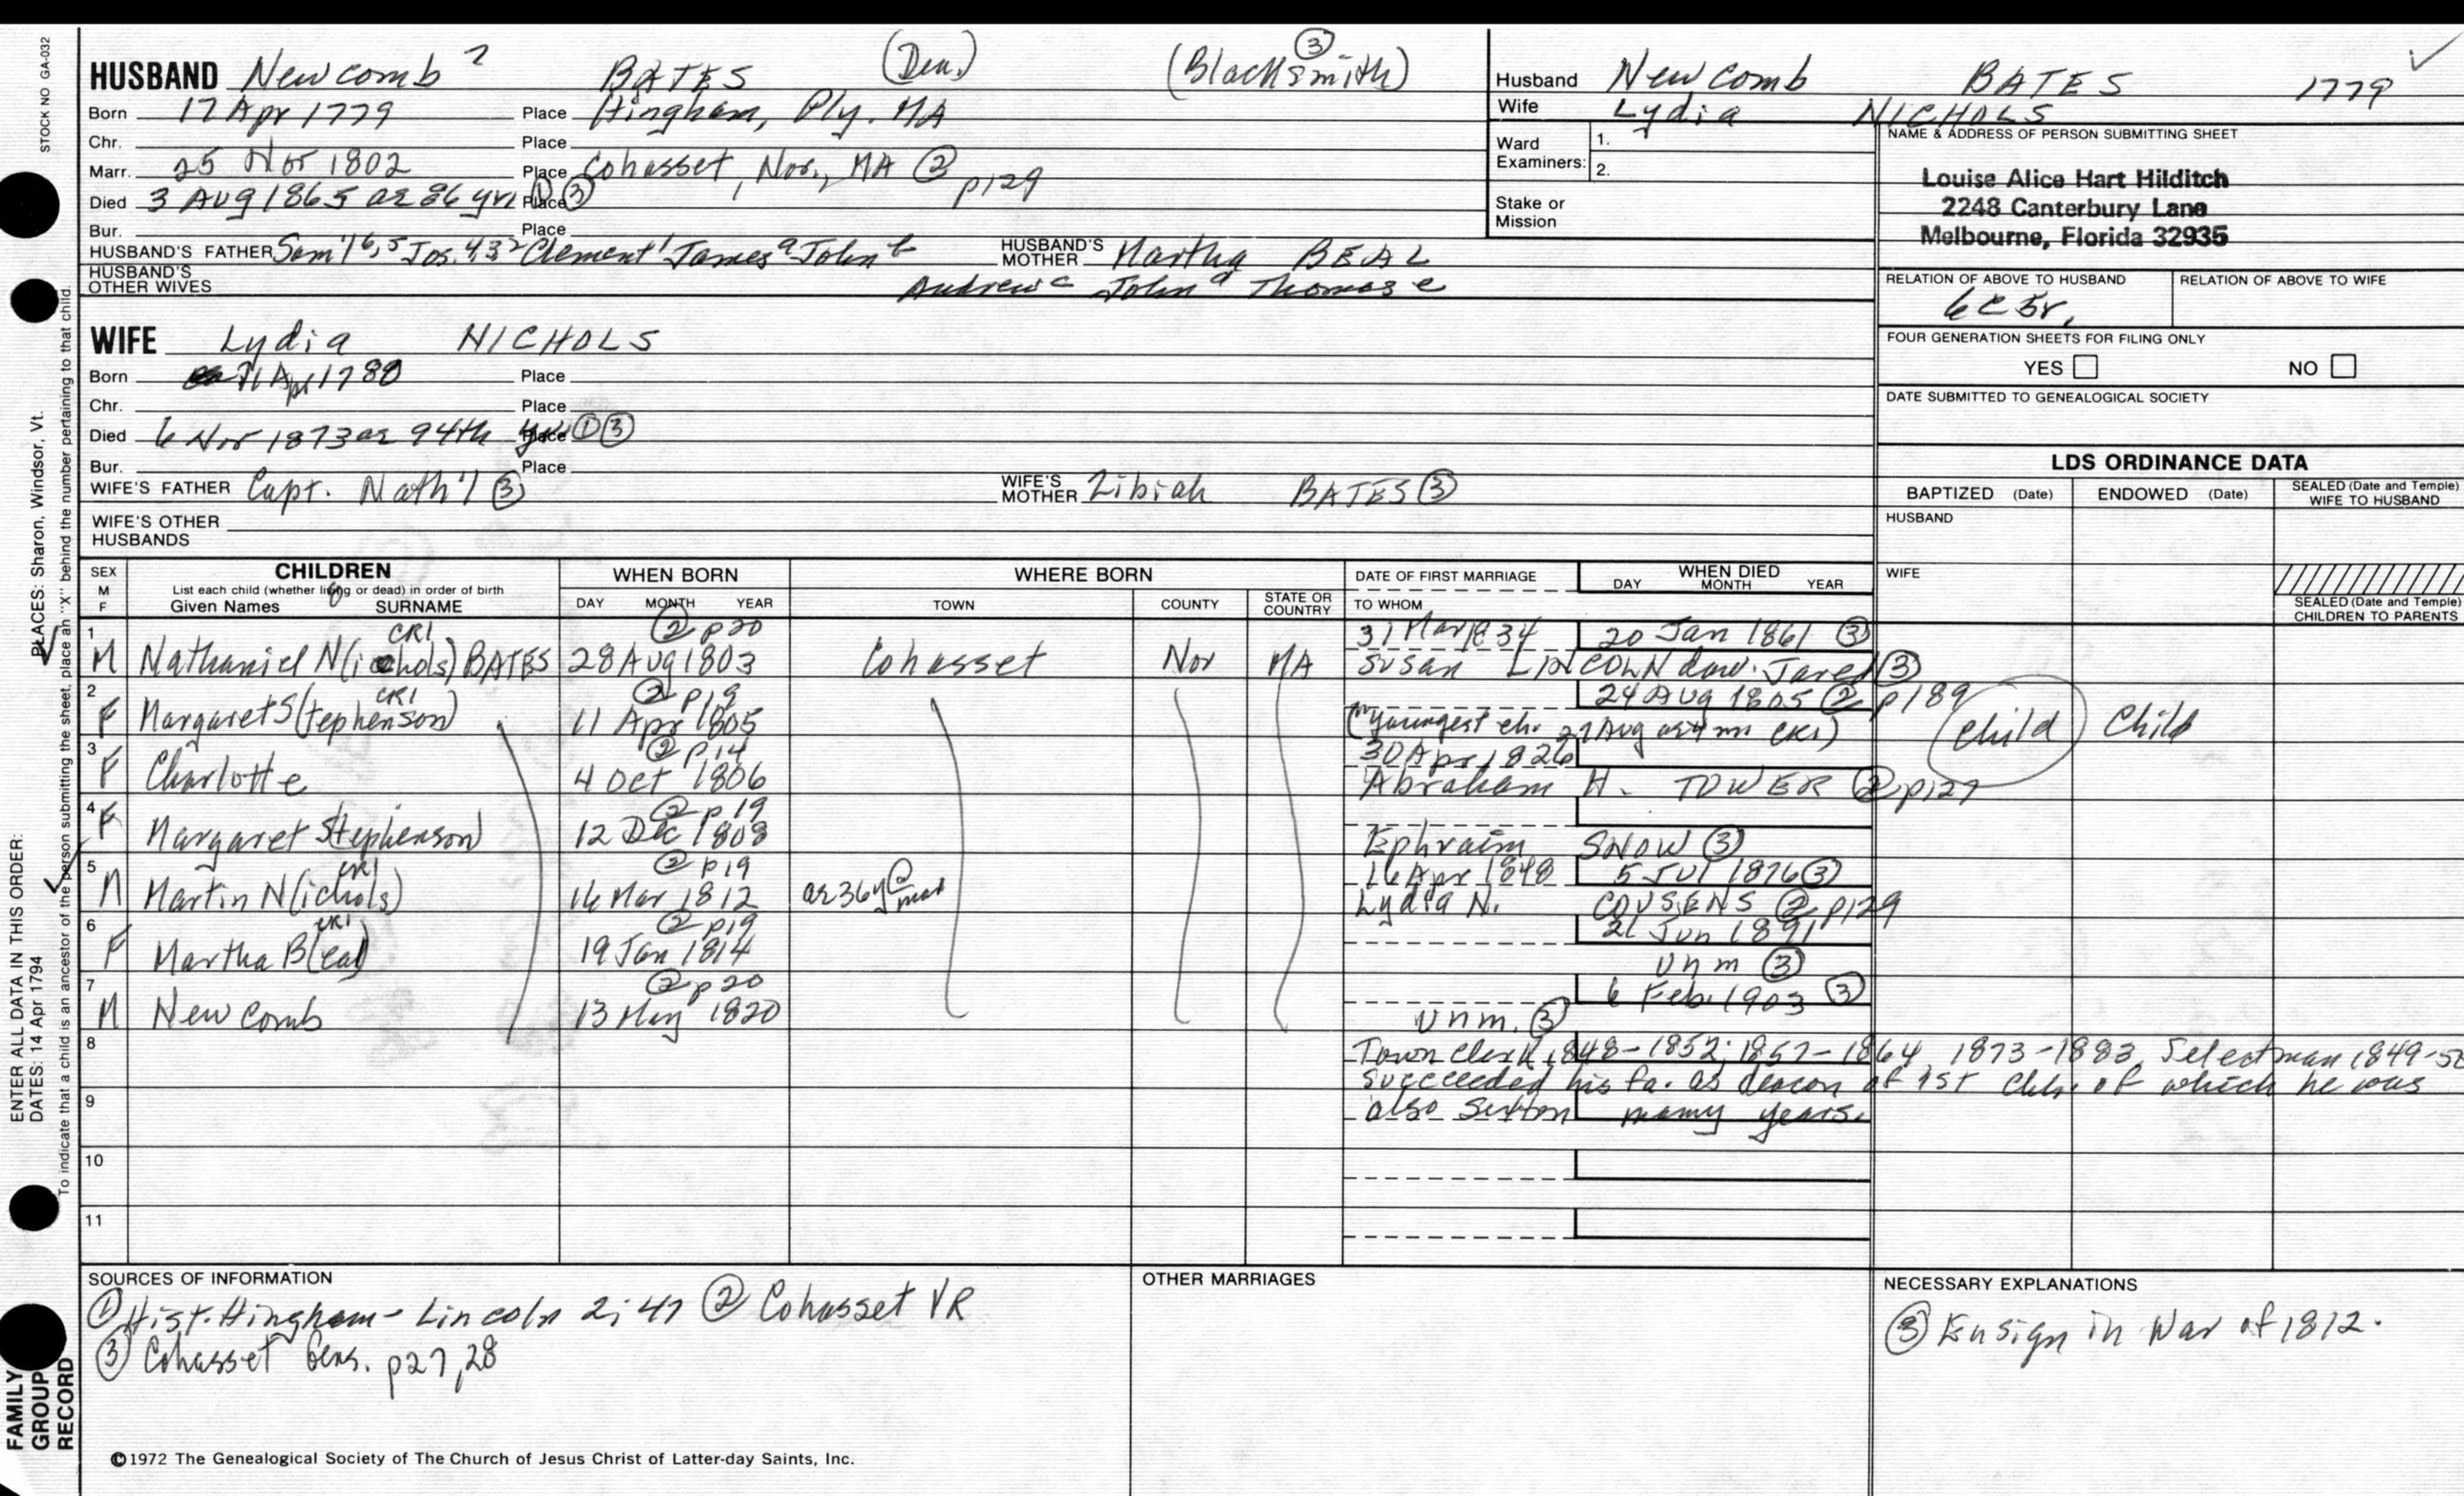 STOCK NO GA-032
HUSBAND Newcomb 7 BATES (Dea.) (Blacksmith) ③
Born 17 Apr 1779 Place Hingham, Ply. MA
Chr. Place
Marr. 25 Nov 1802 Place Cohasset, Nor., MA ② p129
Died 3 Aug 1865 ae 86 yrs ① ③ Place
Bur. Place
HUSBAND'S FATHER Sam'l 6,5 Jos. 4,3,2 Clement 1 James a John b HUSBAND'S MOTHER Martha BEAL
HUSBAND'S OTHER WIVES Andrew c John d Thomas e
WIFE Lydia NICHOLS
Born Apr 1780 Place
Chr. Place
Died 6 Nov 1873 ae 94th yr ① ③ Place
Bur. Place
WIFE'S FATHER Capt. Nath'l ③ WIFE'S MOTHER Zibiah BATES ③
WIFE'S OTHER HUSBANDS
Husband Newcomb BATES 1779 ✓
Wife Lydia NICHOLS
Ward Examiners: 1.
2.
Stake or Mission
NAME & ADDRESS OF PERSON SUBMITTING SHEET
Louise Alice Hart Hilditch
2248 Canterbury Lane
Melbourne, Florida 32935
RELATION OF ABOVE TO HUSBAND RELATION OF ABOVE TO WIFE
6C 5r.
FOUR GENERATION SHEETS FOR FILING ONLY
YES NO
DATE SUBMITTED TO GENEALOGICAL SOCIETY
LDS ORDINANCE DATA
BAPTIZED (Date) ENDOWED (Date) SEALED (Date and Temple) WIFE TO HUSBAND
HUSBAND
WIFE
SEALED (Date and Temple) CHILDREN TO PARENTS
SEX M F CHILDREN WHEN BORN WHERE BORN DATE OF FIRST MARRIAGE WHEN DIED
List each child (whether living or dead) in order of birth
Given Names SURNAME DAY MONTH YEAR TOWN COUNTY STATE OR COUNTRY TO WHOM DAY MONTH YEAR
1 CR1 ② p20 31 Mar 1834 20 Jan 1861 ③
M Nathaniel N(ichols) BATES 28 Aug 1803 Cohasset Nor MA Susan LINCOLN dau. Jared ③
2 CR1 ② p19 24 Aug 1805 ② p189
F Margaret S(tephenson) 11 Apr 1805 ("youngest ch. 27 Aug ae 4 m CR1) Child Child
3 ② p14 30 Apr 1826
F Charlotte 4 Oct 1806 Abraham H. TOWER ② p127
4 ② p19
F Margaret Stephenson) 12 Dec 1808 Ephraim SNOW ③
5 CR1 ② p19 16 Apr 1848 5 Jul 1876 ③
M Martin N(ichols) 14 Mar 1812 ae 36y @ mar Lydia N. COUSENS ② p129
6 CR1 ② p19 21 Jun 1891
F Martha B(eal) 19 Jan 1814 Unm ③
7 ② p20 6 Feb. 1903 ③
M Newcomb 13 May 1820 Unm. ③
8 Town clerk 1848-1852; 1857-1864, 1873-1883, Selectman 1849-52
succeeded his fa. as deacon of 1st Chh. of which he was
9 also Sexton many years.
10
11
SOURCES OF INFORMATION
① Hist. Hingham - Lincoln 2; 47 ② Cohasset VR
③ Cohasset Gens. p27,28
OTHER MARRIAGES
NECESSARY EXPLANATIONS
③ Ensign in War of 1812.
©1972 The Genealogical Society of The Church of Jesus Christ of Latter-day Saints, Inc.
FAMILY GROUP RECORD
ENTER ALL DATA IN THIS ORDER:
DATES: 14 Apr 1794
PLACES: Sharon, Windsor, Vt.
To indicate that a child is an ancestor of the person submitting the sheet, place an "X" behind the number pertaining to that child.